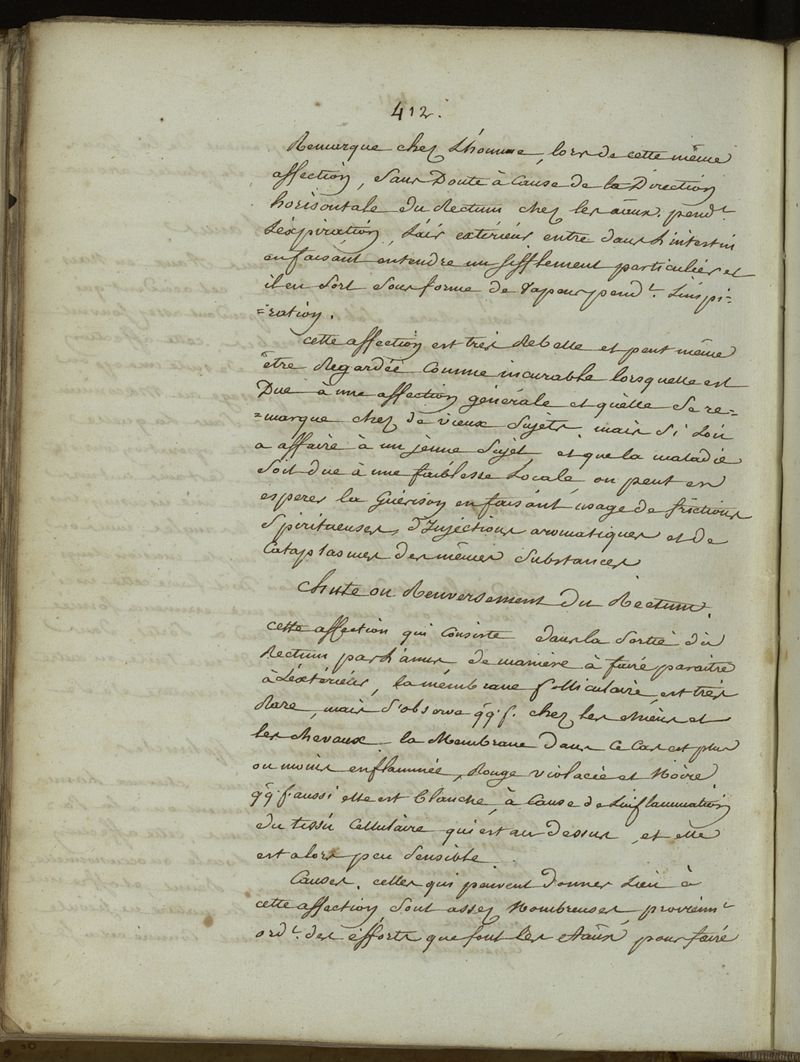 412.
Remarque chez L'homme, lors de cette même
affection, sans Doute à Cause de la Direction
horisontale du Rectum chez les aäux. pend.t
L'éxpiration, L'air exterieur entre dans L'intestin
en faisant entendre un Sifflement particulier et
il en Sort Sous forme de Vapour pend.t L'inspi-
=ration.
Cette affection est très Rebelle et peut même
être Regardée Comme incurable lorsquelle est
Due à une affection générale et qu'elle se re=
=marque chez de vieux Sujets, mais Si Lon
a affaire à un jeune Sujet, et que la maladie
Soit due à une faiblesse Locale, on peut en
esperer la Guérison en faisant usage de frictions
Spiritueuses, d'Injections aromatiques et de
Cataplasmes des mêmes Substances
Chute ou Renversement du Rectum.
Cette affection qui Consiste dans la Sortie du
Rectum par L'anus de manière à faire paraitre
à L'éxtérieur, la mémbrane folliculaire, est très
Rare, mais S'observe qq.f. chez les chiens et
les chevaux. la Membrane dans Ce Cas est plus
ou moins enflammée, Rouge violacée et Noire
qq.f. aussi elle est blanche, à Cause de L'inflammation
du tissu Cellulaire qui est au dessus, et elle
est alors peu Sensible.
Causes. celles qui peuvent donner Lieu à
cette affection, Sont assez Nombreuses, provienn.t
ord.t des éfforts que font les aäux pour faire